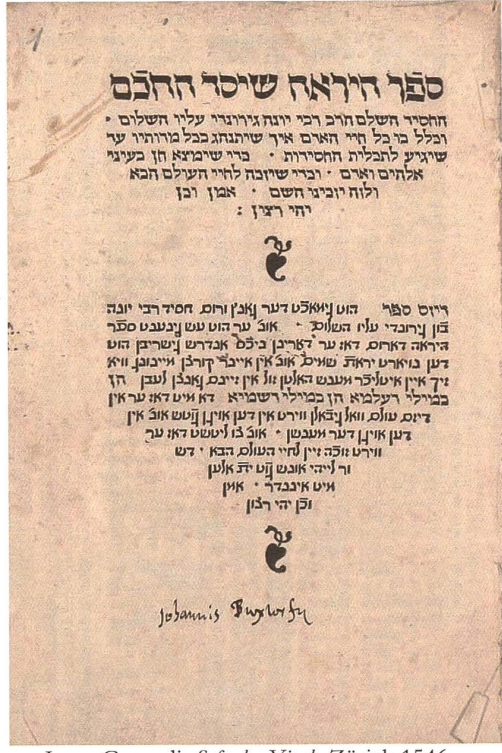 1
ספר היראה שיסד החכם
החסיד השלם הרב רבי יונה גירונדי עליו השלום •
וכלל בו כל חיי האדם איך שיתנהג בכל מדותיו עד
שיגיע לתכלית החסידות • כדי שימצא חן בעיני
אלהים ואדם • וכדי שיזכה לחיי העולם הבא
ולזה יזכיני השם • אמן וכן
יהי רצון :
דיזש ספר הוט גימאכט דער גאנץ ורום חסיד רבי יונה
בון גירונדי עליו השלום • אונ' ער הוט עש גינענט ספר
היראה דארום דאז ער דארינן ניכס אנדרש גישריבן הוט
דען נויארט יראת שמים אונ' אין איינר קורצן מיינונג וויא
זיך איין איטליכר מענש האלטן זול אין זיינם גאנצן לעבן הן
במילי דעלמא הן במילי דשמיא דא מיט דאז ער אין
דיזם עולם וואל גיבאלן ווירט אין דען אויגן גוטש אונ' אין
דען אויגן דער מענשן • אונ' צו ליטשט דאז ער
ווירט זוכה זיין לחיי העולם הבא • דש
ור לייהי אונש גוט ית' אלען
מיט איננדר • אמן
וכן יהי רצון
Johannis Buxtorfij